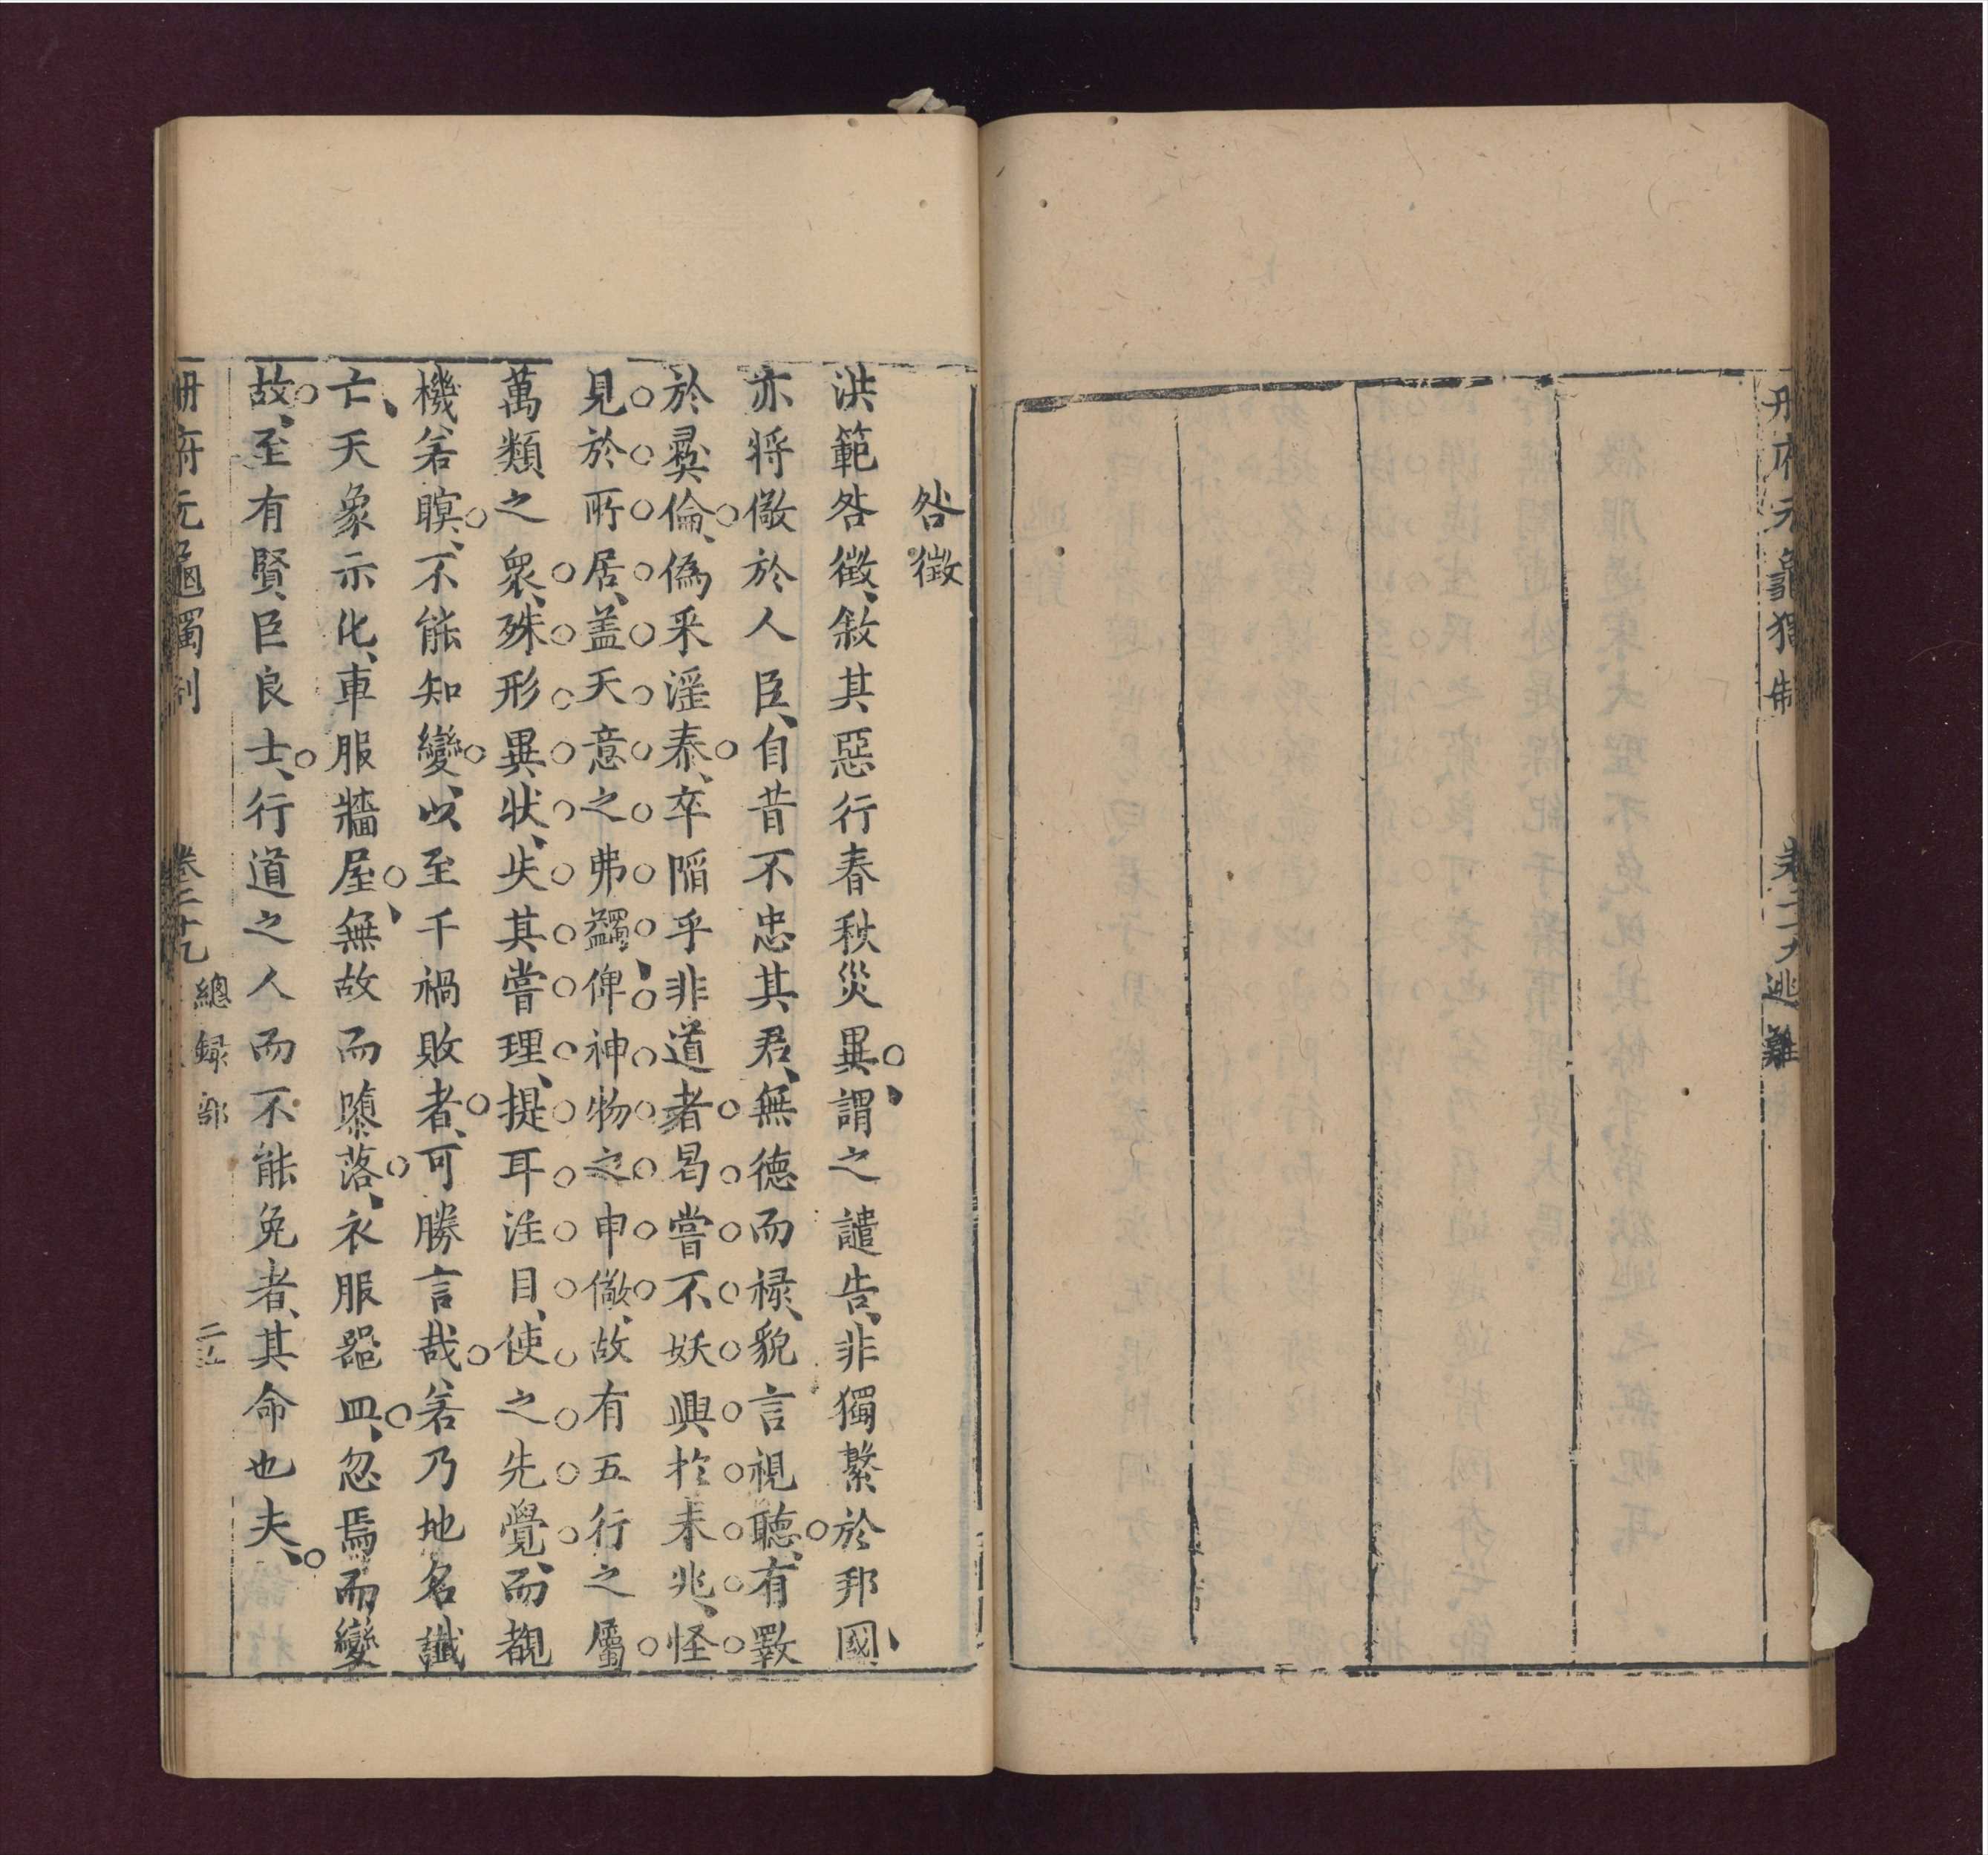 冊府元龜獨制 卷二十九 逃難
咎徵
洪範咎徵、敘其惡行春秋災異、謂之譴告、非獨繫於邦國、
亦將儆於人臣、自昔不忠其君、無德而祿、貌言視聽、有斁
於彝倫、僞采滛泰、卒陷乎非道者曷嘗不妖興於未兆、怪
見於所居、盖天意之弗蠲、俾神物之申儆、故有五行之屬
萬類之衆、殊形異狀、失其嘗理、提耳注目、使之先覺、而覩
機若瞑、不能知變、以至千禍敗者、可勝言哉、若乃地名讖
亡、天象示化、車服牆屋、無故而隳落、衣服器皿、忽焉而變
故、至有賢臣良士、行道之人而不能免者、其命也夫、
冊府元龜獨制 卷二十九 總録部